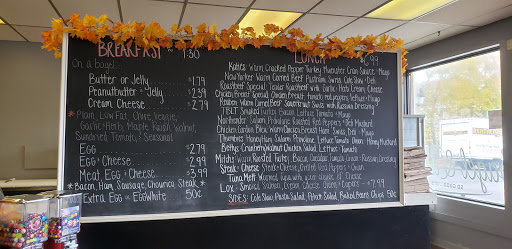 BREAKFAST ~ 7:30
On a bagel...
Butter or Jelly $1.79
Peanutbutter + Jelly $2.39
Cream Cheese $2.79
* Plain, Low Fat, Chive, Veggie,
Garlic Herb, Maple Raisin Walnut,
Sundried Tomato, + Seasonal
Egg $2.79
Egg + Cheese $2.99
Meat, Egg + Cheese $3.99
* Bacon, Ham, Sausage, Chourica, Steak *
Extra Egg or Egg White 50¢
LUNCH $6.99
Warm Cracked Pepper Turkey, Muenster, Cran. Sauce + Mayo
New Yorker Warm Corned Beef, Pastrami, Swiss, Cole Slaw + Deli
Roastbeef Special Tender Roastbeef with Garlic + Herb Cream Cheese
Chicken Breast Special Chicken Breast, Tomato, Red peppers, lettuce + Mayo
Reuben Warm Corned Beef, Sauerkraut, Swiss with Russian Dressing
TBLT Smoked Turkey, Bacon, Lettuce, Tomato + Mayo
Northender Salami, Provolone, Roasted Red Peppers + Red Mustard
Chicken Cordon Bleu Warm Chicken Breast, Ham, Swiss, + Mayo
Honey Ham, Salami, Provolone, Lettuce, Tomato, Onion + Honey Mustard
Cranberry Walnut Chicken Salad, Lettuce + Tomato
Mitch's Warm Roasted Turkey, Bacon, Cheddar, Tomato, Onion + Russian Dressing
Steak + Cheese Steak, Cheese, Grilled Red Peppers + Onion
Tuna Melt Warmed Tuna with your choice of Cheese
Lox Smoked Salmon, Cream Cheese, Onion + Capers $7.99
SIDES: Cole Slaw, Pasta Salad, Potato Salad, Baked Beans, Chips 50¢